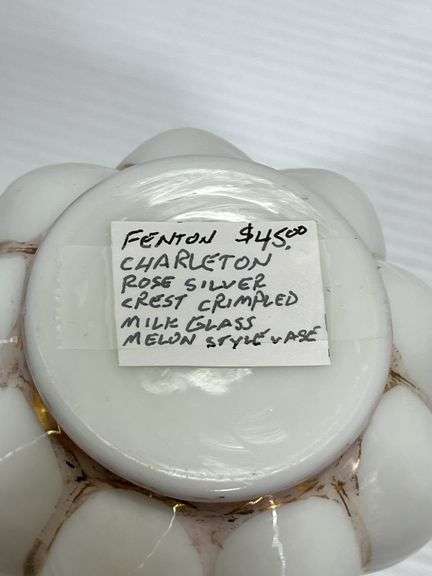 FENTON $45.00
CHARLETON
ROSE SILVER
CREST CRIMPLED
MILK GLASS
MELON STYLE VASE